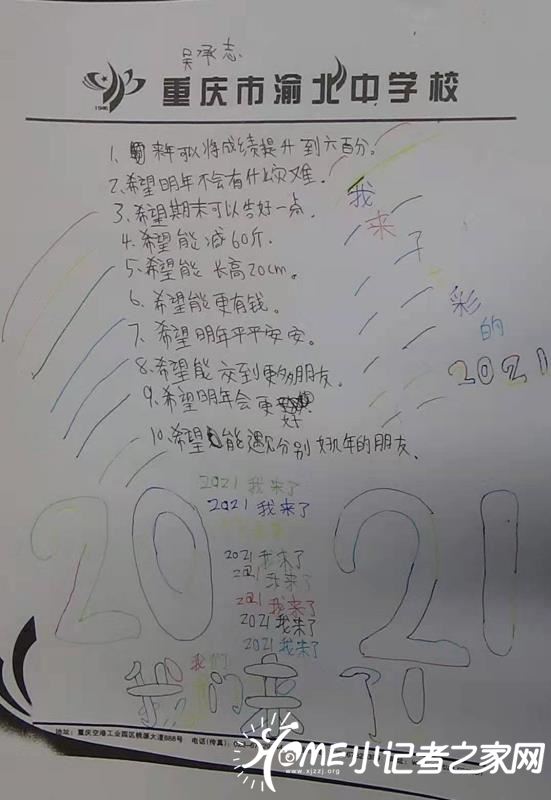 吴承志
1946
重庆市渝北中学校
1、来年可以将成绩提升到六百分。
2、希望明年不会有什么灾难。
3、希望期末可以考好一点。
4、希望能减60斤.
5、希望能长高20cm。
6、希望能更有钱。
7、希望明年平平安安。
8、希望能交到更多朋友。
9、希望明年会更好
10、希望能遇见分别好几年的朋友、
我来了
彩的
2021
2021 我来了
2021 我来了
2021 我来了
2021 我来了
2021 我来了
2021 我来了
2021 我来了
2021
我们
我们来了!
地址:重庆空港工业园区桃源大道888号 电话(传真):023-6
HOME小记者之家网
www.xjzzj.org